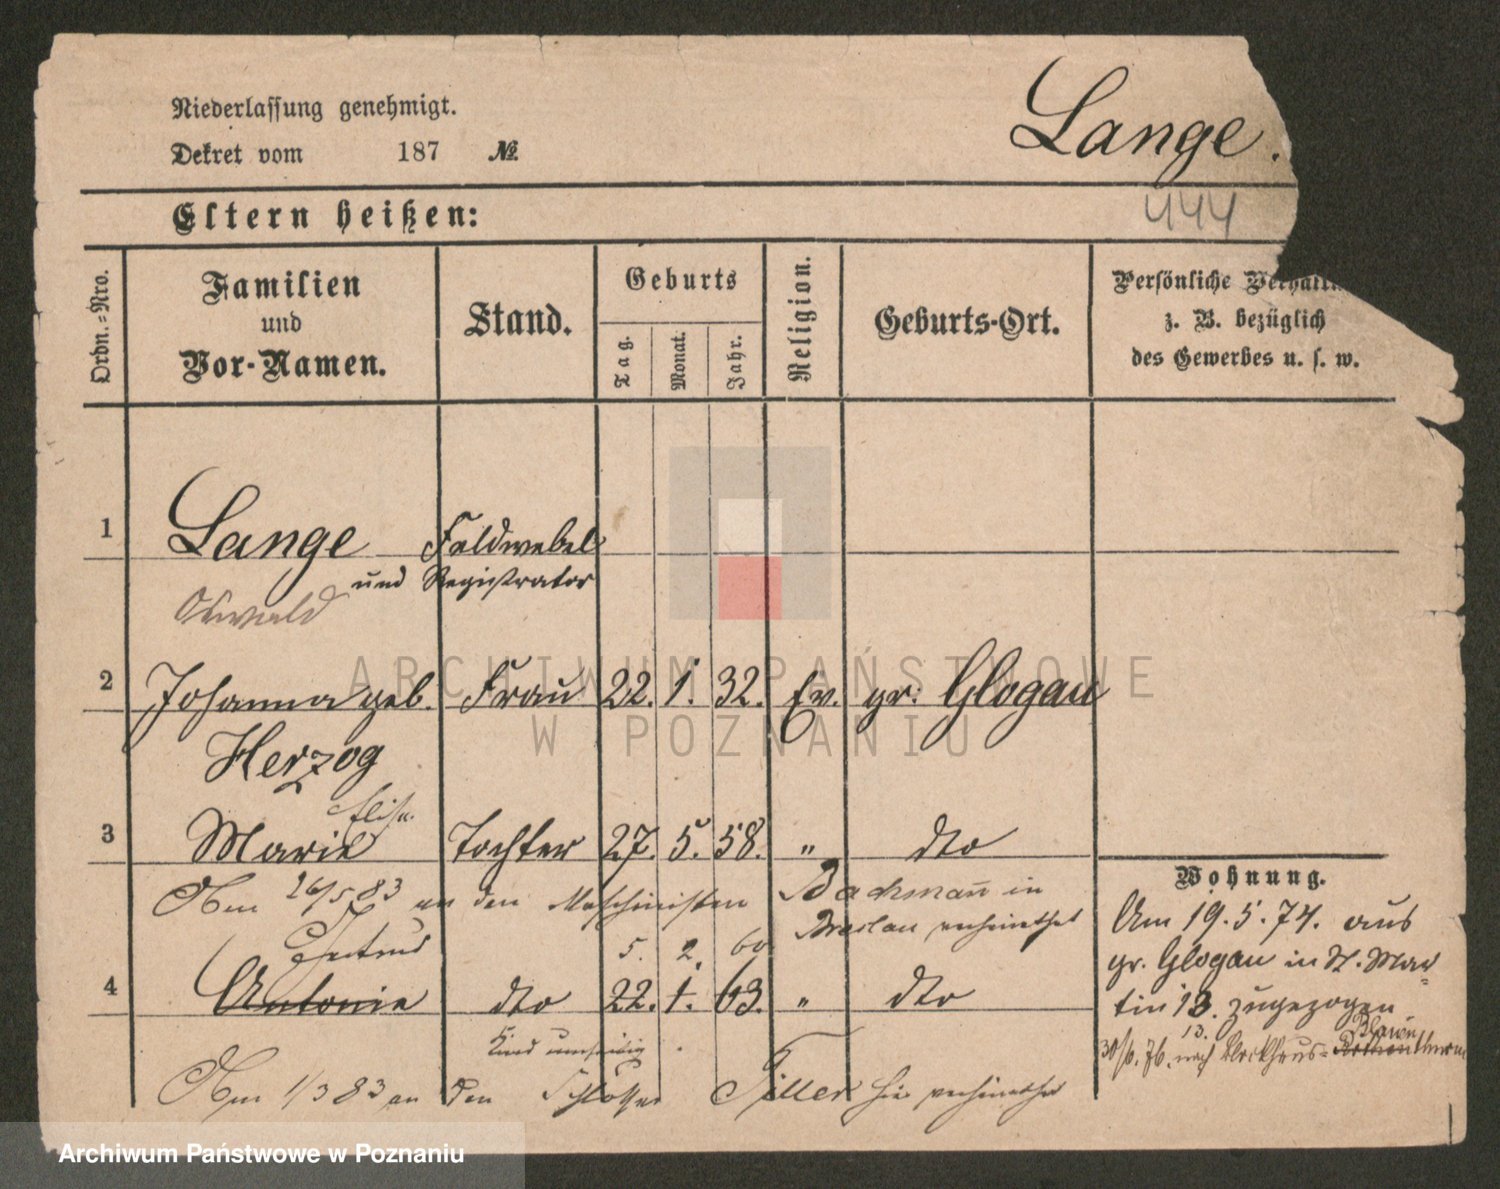 Niederlassung genehmigt.
Dekret vom 187 №
Lange.
444
Eltern heißen:
Ordn.-Nro.
Familien und Vor-Namen.
Stand.
Geburts
Tag.
Monat.
Jahr.
Religion.
Geburts-Ort.
Persönliche
z. B. bezüglich
des Gewerbes u. s. w.
1 Lange Feldwebel
und Registrator
Oswald
2 Johanna geb. Frau 22. 1. 32. Ev. gr: Glogau
Herzog
Elise
3 Marie Tochter 27. 5. 58. " dto
Am 26/5 83 an den Maschinisten Bachman̄ in
Breslau verheirathet
Gertrud 5. 2. 60
4 Antonie dto 22. 1. 63. " dto
Am 1/3 83 an den Schlosser Tiller hier verheirathet
Wohnung.
Am 19. 5. 74. aus
gr. Glogau in St. Mar
tin 13. zugezogen
13.
30/6. 76. nach
ARCHIWUM PAŃSTWOWE
W POZNANIU
Archiwum Państwowe w Poznaniu